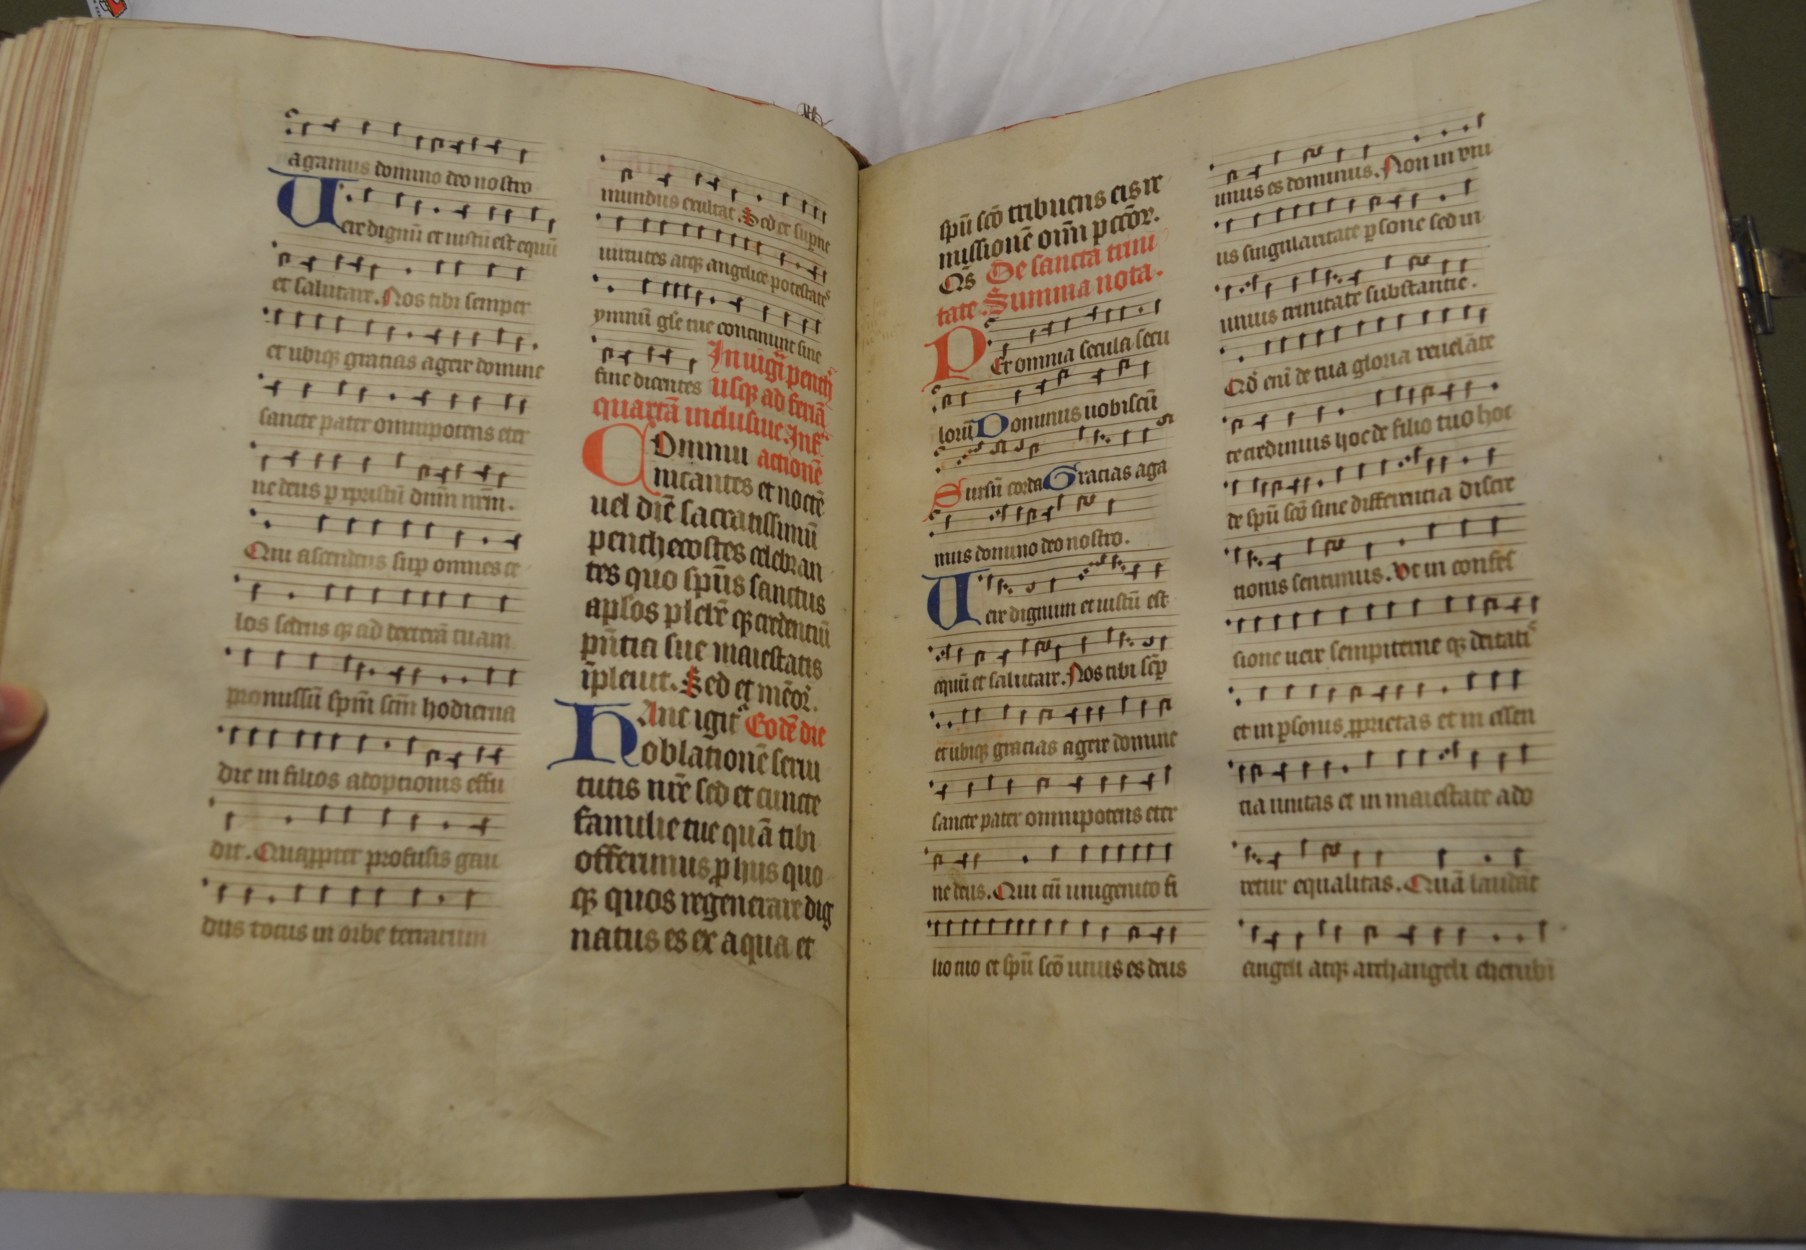 agamus domino deo nostro
Uere dignū et iustū est equū
et salutare. Nos tibi semper
et ubiqꝫ gratias agere domine
sancte pater omnipotens eter
ne deus p xpistū dnm nrm.
Qui ascendens sup omnes ce
los sedens qꝫ ad dexterā tuam
promissū spm scm hodierna
die in filios adoptionis effu
dit. Quapropter profusis gau
diis totus in orbe terrarum
mundus exultat. Sed et supne
uirtutes atqꝫ angelice potestates
ymnū gle tue concinunt sine
fine dicentes In uigl penth
usqꝫ ad feriā
quartā inclusiue. Inf
COmmu actionē
nicantes et noctē
uel diē sacratissimū
penthecostes celebran
tes quo spūs sanctus
aplos plebē qꝫ credentiū
pn̄tia sue maiestatis
īpleuit. Sed et mēor.
HAnc igit Eodē die
oblationē seruı
tutis nr̄e sed et cuncte
familie tue quā tibi
offerimus p hiis quo
qꝫ quos regenerare dig
natus es ex aqua et
spū scō tribuens eis re
missionē oīm pctōr.
Qs De sancta trini
tate. Summa nota.
PEr omnia secula secu
lorū Dominus uobiscū
Sursū corda Gracias aga
mus domino deo nostro.
Uere dignum et iustū est
equū et salutare. Nos tibi semp
et ubiqꝫ gracias agere domine
sancte pater omnipotens eter
ne deus. Qui cū unigenito fi
lio tuo et spū scō unus es deus
unus es dominus. Non in uni
us singularitate psone sed in
unius trinitate substantie.
Qd' eni de tua gloria reuelāte
te credimus hoc de filio tuo hoc
de spū scō sine differentia discre
tionis sentimus. Ut in confes
sione uere sempiterne qꝫ deitatis
et in psonis pprietas et in essen
tia unitas et in maiestate ado
retur equalitas. Quā laudāt
angeli atqꝫ archangeli cherubī